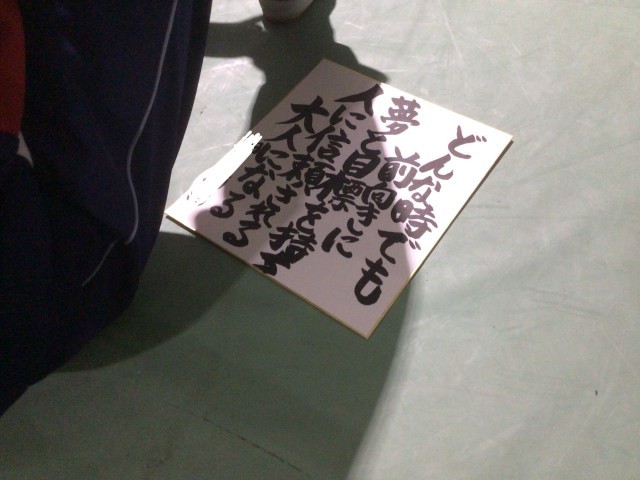 どんな時でも
前向きに
夢と目標を持ち
人に信頼される
大人になる